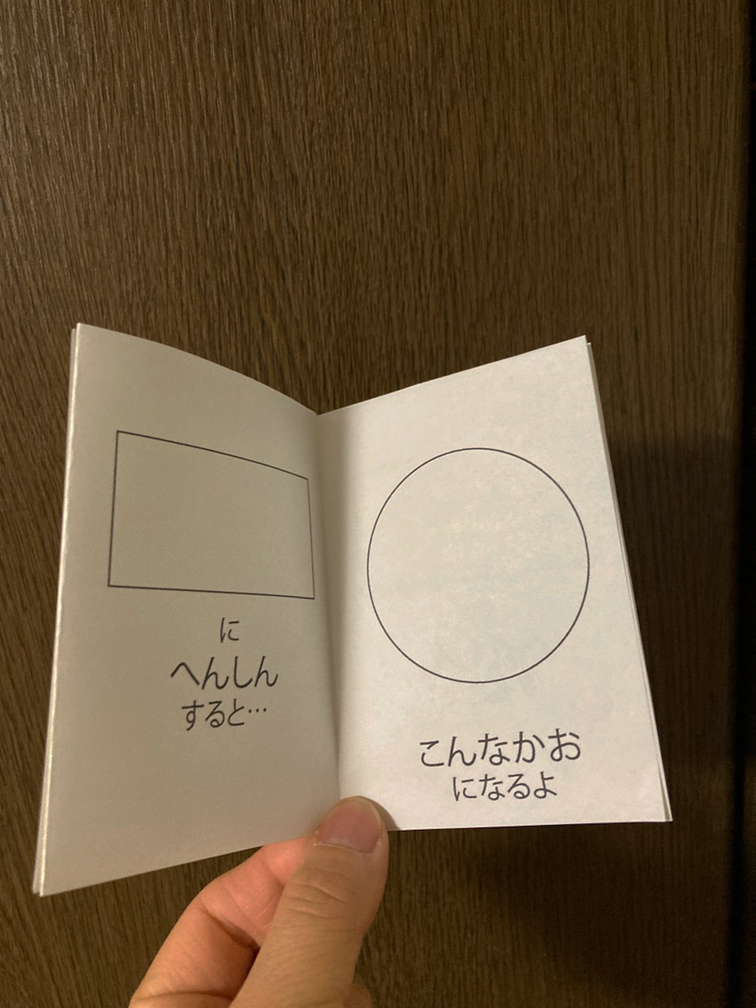 に
へんしん
すると…
こんなかお
になるよ